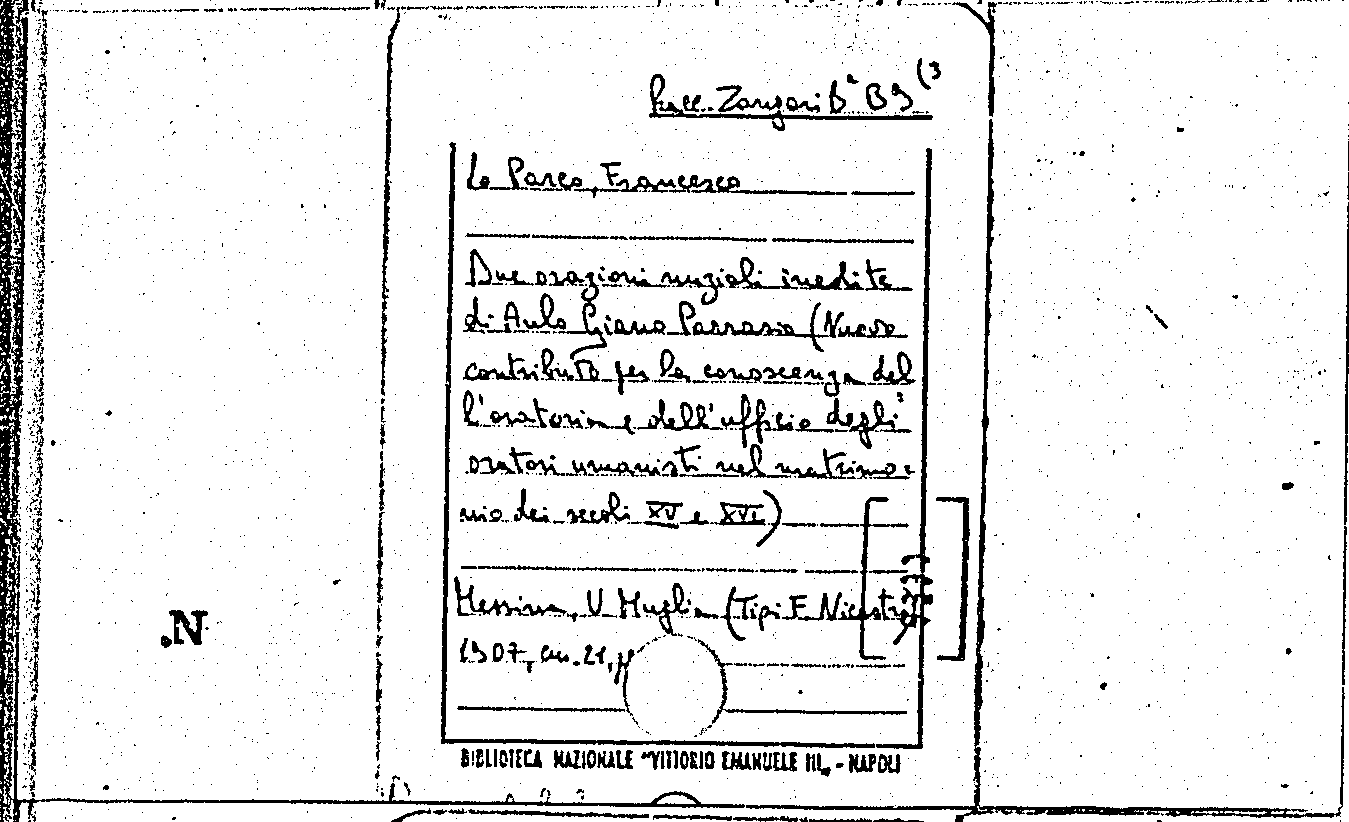 Racc. Zangari Bª B9 (3
Lo Parco, Francesco
Due orazioni nuziali inedite
di Aulo Giano Parrasio (Nuovo
contributo per la conoscenza del
l'oratoria e dell'ufficio degli
oratori umanisti nel matrimo=
nio dei secoli XV e XVI)
Messina, V. Muglia (Tipi F. Nicastro)
1907, cm. 21,
.N
BIBLIOTECA NAZIONALE "VITTORIO EMANUELE III„ - NAPOLI